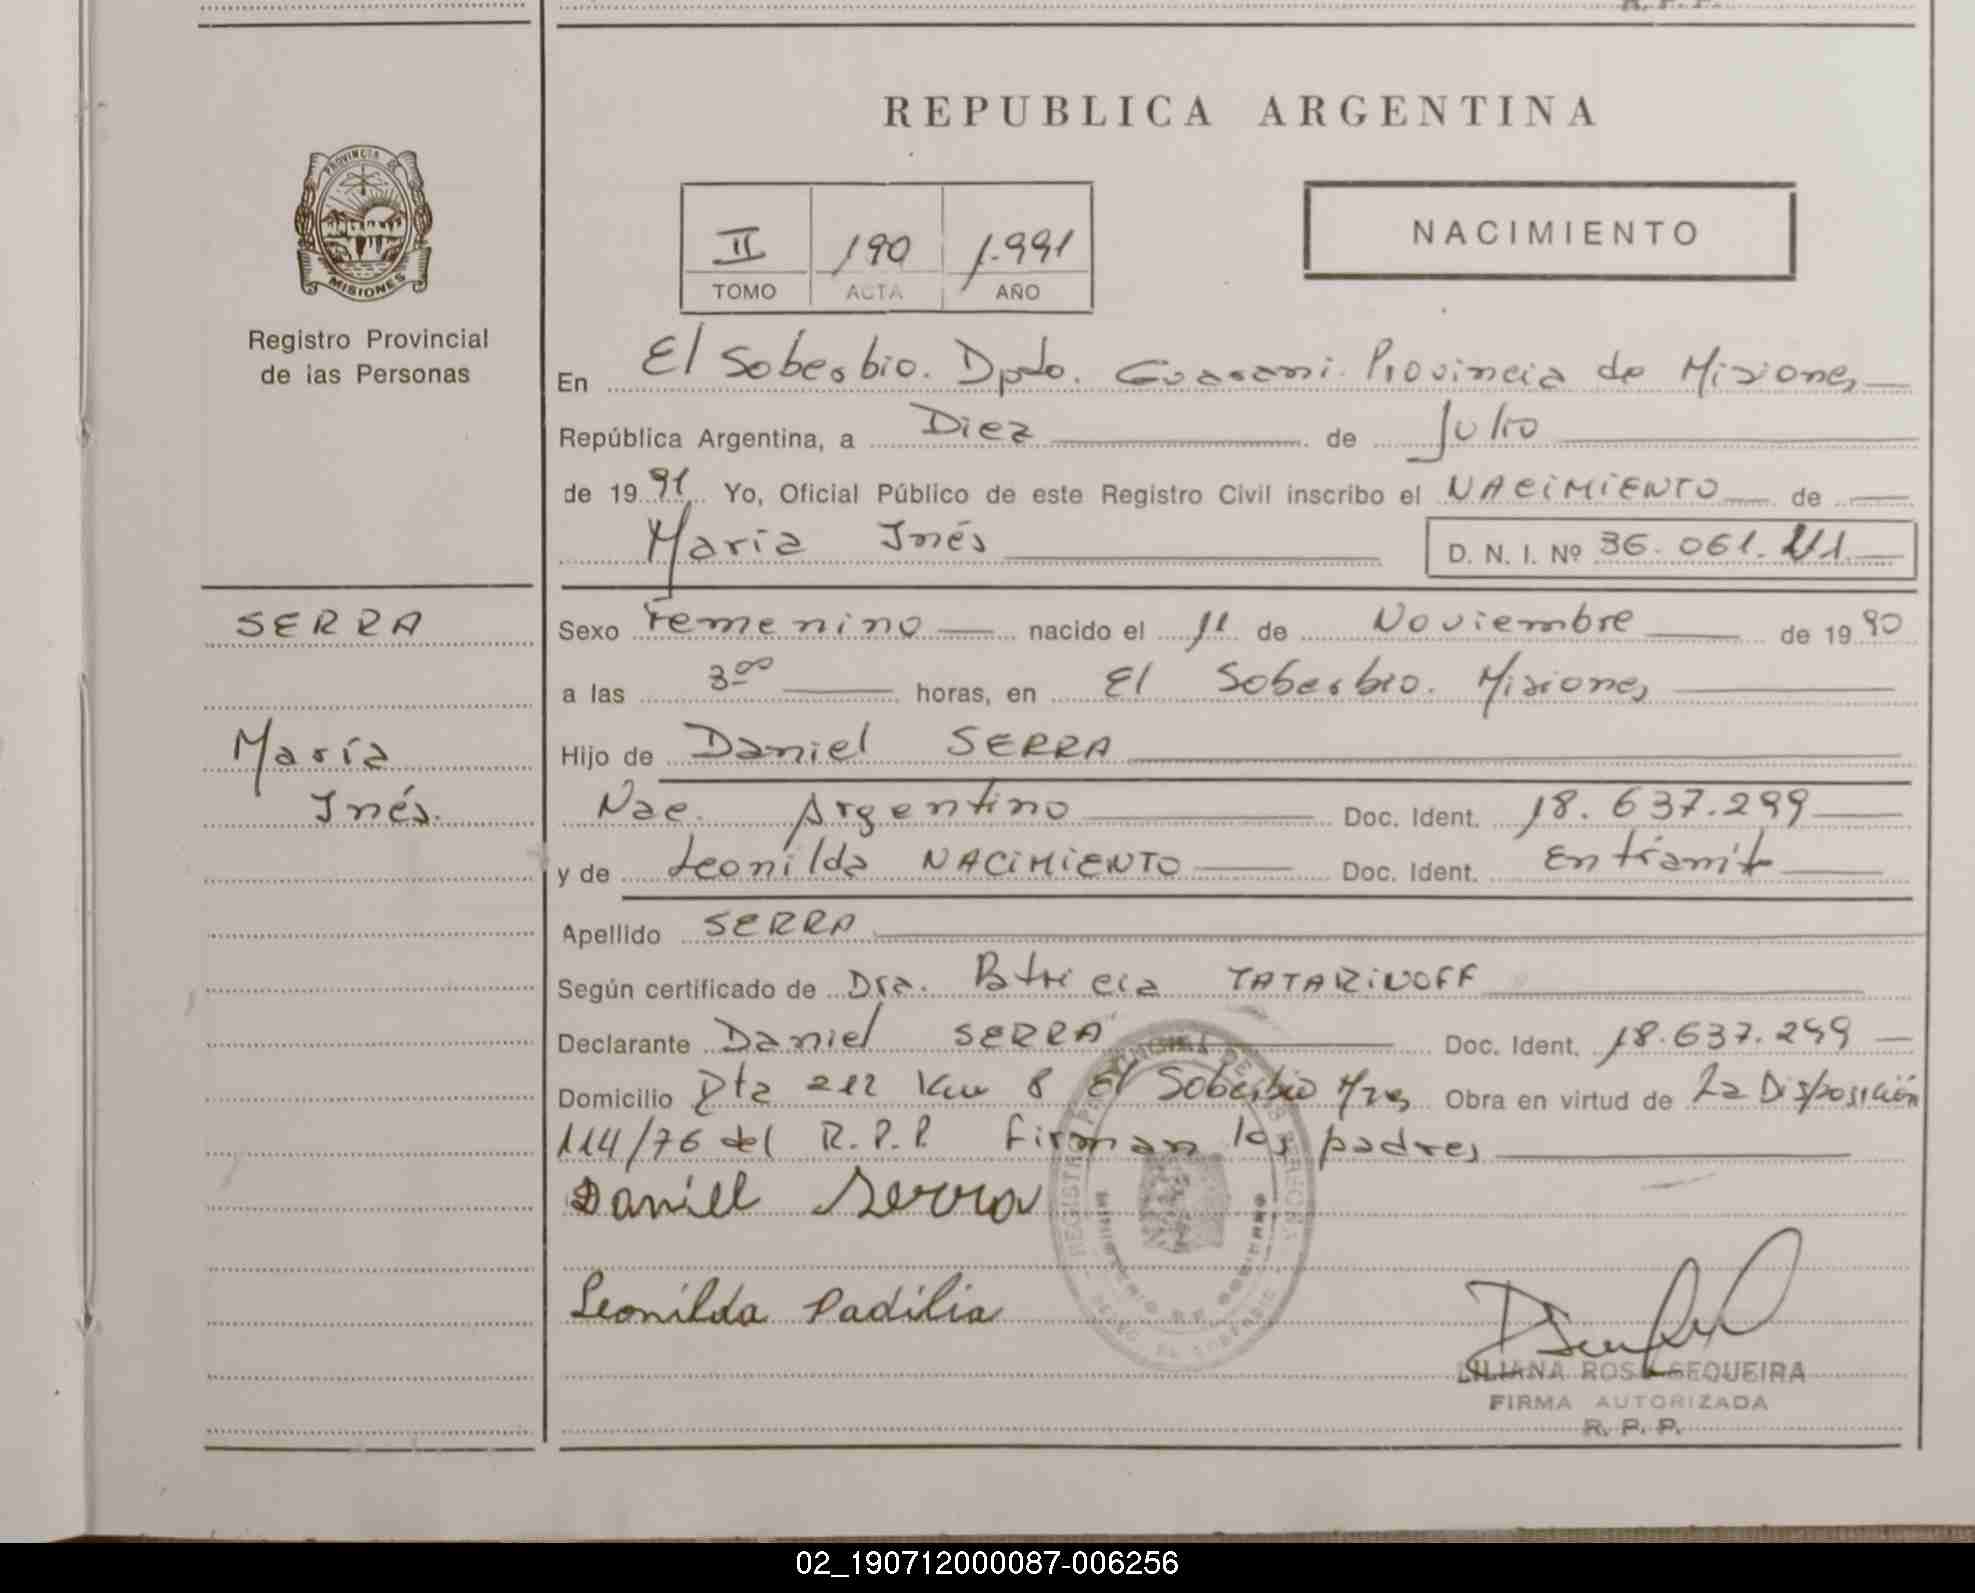 R. P. P.
REPUBLICA ARGENTINA
PROVINCIA DE
MISIONES
Registro Provincial
de las Personas
II 190 1.991
TOMO ACTA AÑO
NACIMIENTO
En El Soberbio. Dpto. Guarani. Provincia de Misiones
República Argentina, a Diez de Julio
de 1991 Yo, Oficial Público de este Registro Civil inscribo el NACIMIENTO de
María Inés D. N. I. Nº 36.061.
SERRA
María
Inés.
Sexo Femenino nacido el de Noviembre de 1990
a las 3⁰⁰ horas, en El Soberbio. Misiones
Hijo de Daniel SERRA
Nac. Argentino Doc. Ident. 18.637.299
y de Leonilda NACIMIENTO Doc. Ident. En trámite
Apellido SERRA
Según certificado de Dra. Patricia TATARINOFF
Declarante Daniel SERRA Doc. Ident. 18.637.299
Domicilio Rta 212 Km 8 El Soberbio Mnes Obra en virtud de La Disposición
114/76 del R.P.P. Firman los padres
Daniel Serra
Leonilda Padilia
REGISTRO PROVINCIAL DE LAS PERSONAS
MINISTERIO DE GOBIERNO
EL SOBERBIO
LILIANA ROSA SEQUEIRA
FIRMA AUTORIZADA
R. P. P.
02_190712000087-006256